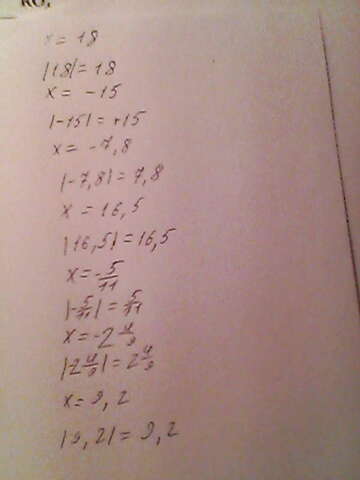 RO,
x = 18
|18| = 18
x = -15
|-15| = +15
x = -7,8
|-7,8| = 7,8
x = 16,5
|16,5| = 16,5
x = -5/11
|-5/11| = 5/11
x = -2 4/9
|-2 4/9| = 2 4/9
x = 9,2
|9,2| = 9,2